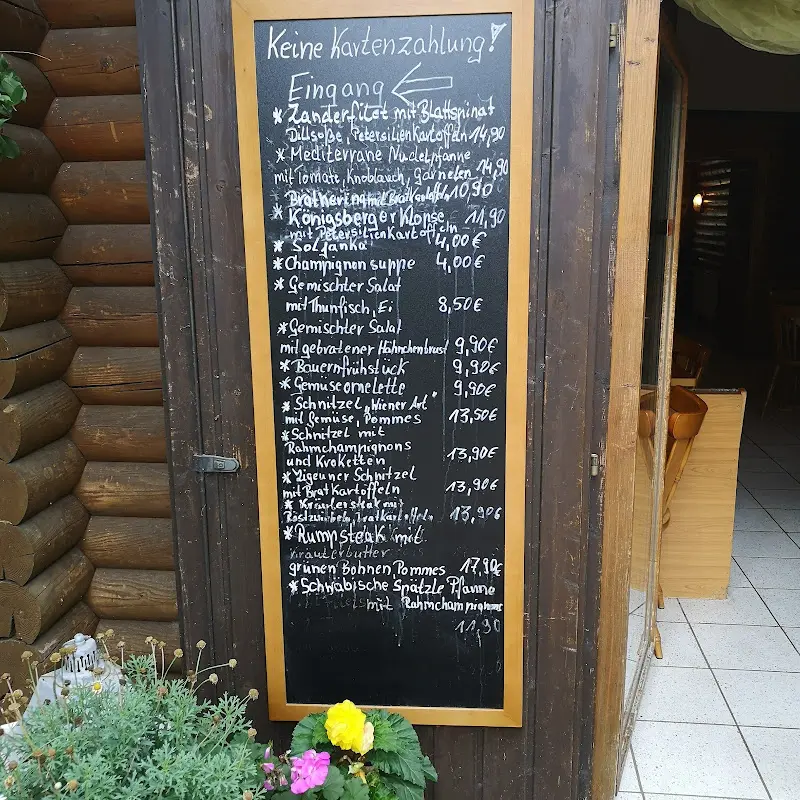 Keine Kartenzahlung!
Eingang
* Zanderfilet mit Blattspinat
Dillsoße, Petersilienkartoffeln 14,90
* Mediterrane Nudelpfanne
mit Tomatt, Knoblauch, Garnelen 14,90
Brathering mit Bratkartoffeln 10,90
* Königsberger Klopse 11,90
mit Petersilienkartoffeln
* Soljanka 4,00€
* Champignonsuppe 4,00€
* Gemischter Salat
mit Thunfisch, Ei 8,50€
* Gemischter Salat
mit gebratener Hähnchenbrust 9,90€
* Bauernfrühstück 9,90€
* Gemüseomelette 9,90€
* Schnitzel „Wiener Art"
mit Gemüse, Pommes 13,50€
* Schnitzel mit
Rahmchampignons
und Kroketten 13,90€
* Zigeuner Schnitzel
mit Bratkartoffeln 13,90€
* Kräutersteak mit
Röstzwiebeln, Bratkartoffeln 13,90€
* Rumpsteak mit
Kräuterbutter
grünen Bohnen Pommes 17,90€
* Schwäbische Spätzle Pfanne
mit Rahmchampignons
11,90